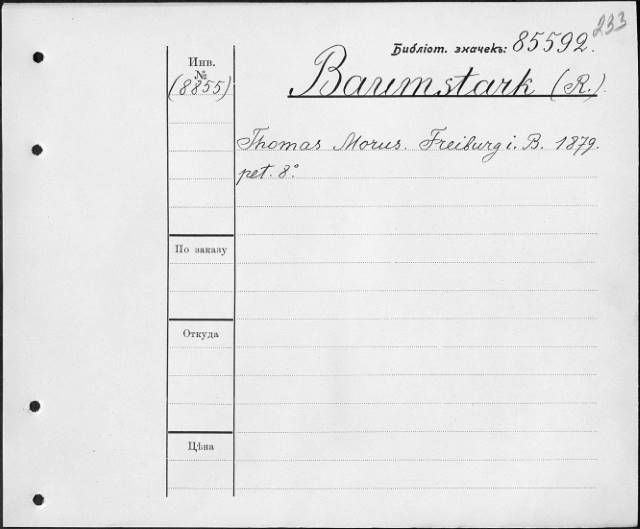 233
Библіот. значекъ: 85592.
Инв.
№
(8855)
Baumstark (R.).
Thomas Morus. Freiburg i. B. 1879.
pet. 8°
По заказу
Откуда
Цѣна